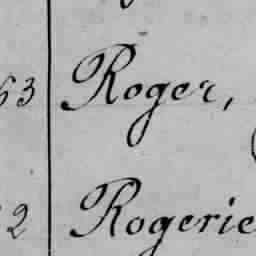 63 Roger,
2 Rogerie